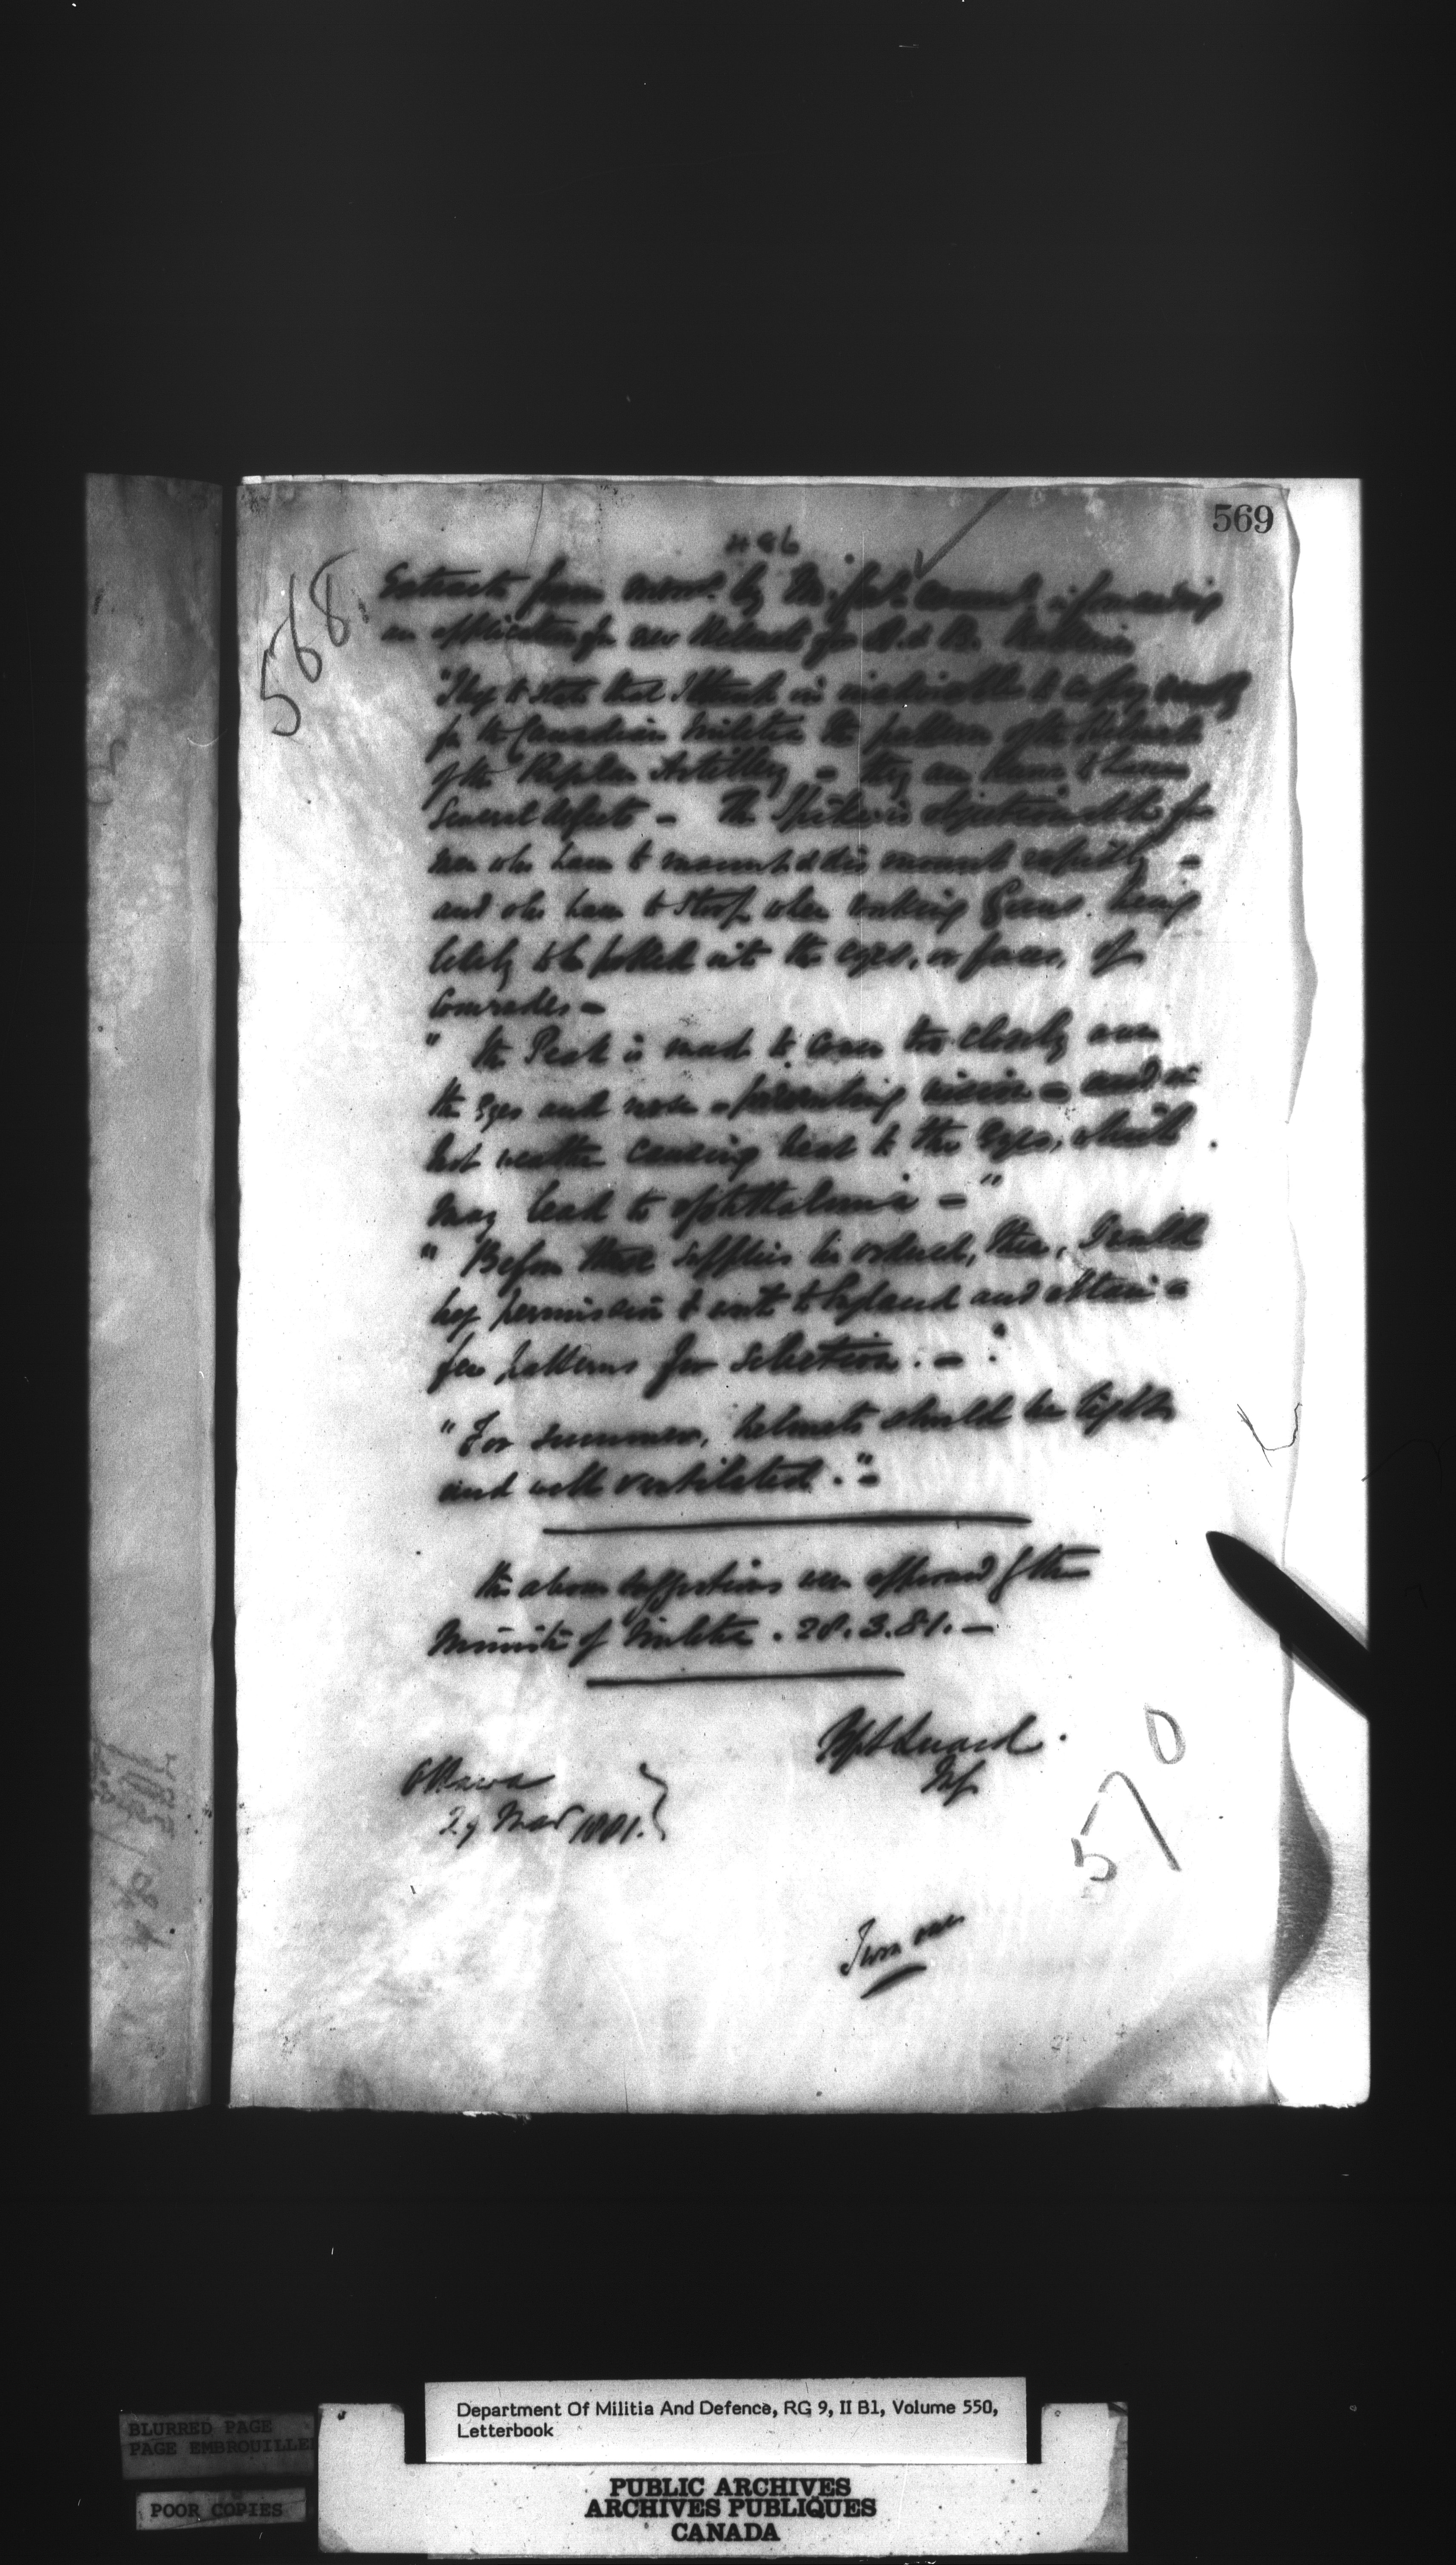 569
486
568
Extracts from memo. by M. Genl. forwarding
an application for new Helmets for A. & B. Batteries
"I beg to state that I think it inadvisable to copy exactly
for the Canadian Militia the pattern of the Helmets
of the Regular Artillery - they are known to have
several defects - The Spike is objectionable for
men who have to mount & dismount rapidly -
and who have to stoop when working Guns being
likely to be poked into the eyes, or faces, of
Comrades -
" The Peak is made to come too closely over
the Eyes and nose - preventing vision - and in
hot weather causing heat to the Eyes, which
may lead to ophthalmia - "
" Before these supplies be ordered, then, I would
beg permission to write to England and obtain a
few patterns for selection. - "
"For summer, helmets should be lighter
and well ventilated." -
The above suggestions were approved by the
Minister of Militia. 28.3.81. -
Luard
MG
Ottawa
29 Mar 1881.
570
Turn over
Department Of Militia And Defence, RG 9, II B1, Volume 550,
Letterbook
BLURRED PAGE
PAGE EMBROUILLEE
POOR COPIES
PUBLIC ARCHIVES
ARCHIVES PUBLIQUES
CANADA